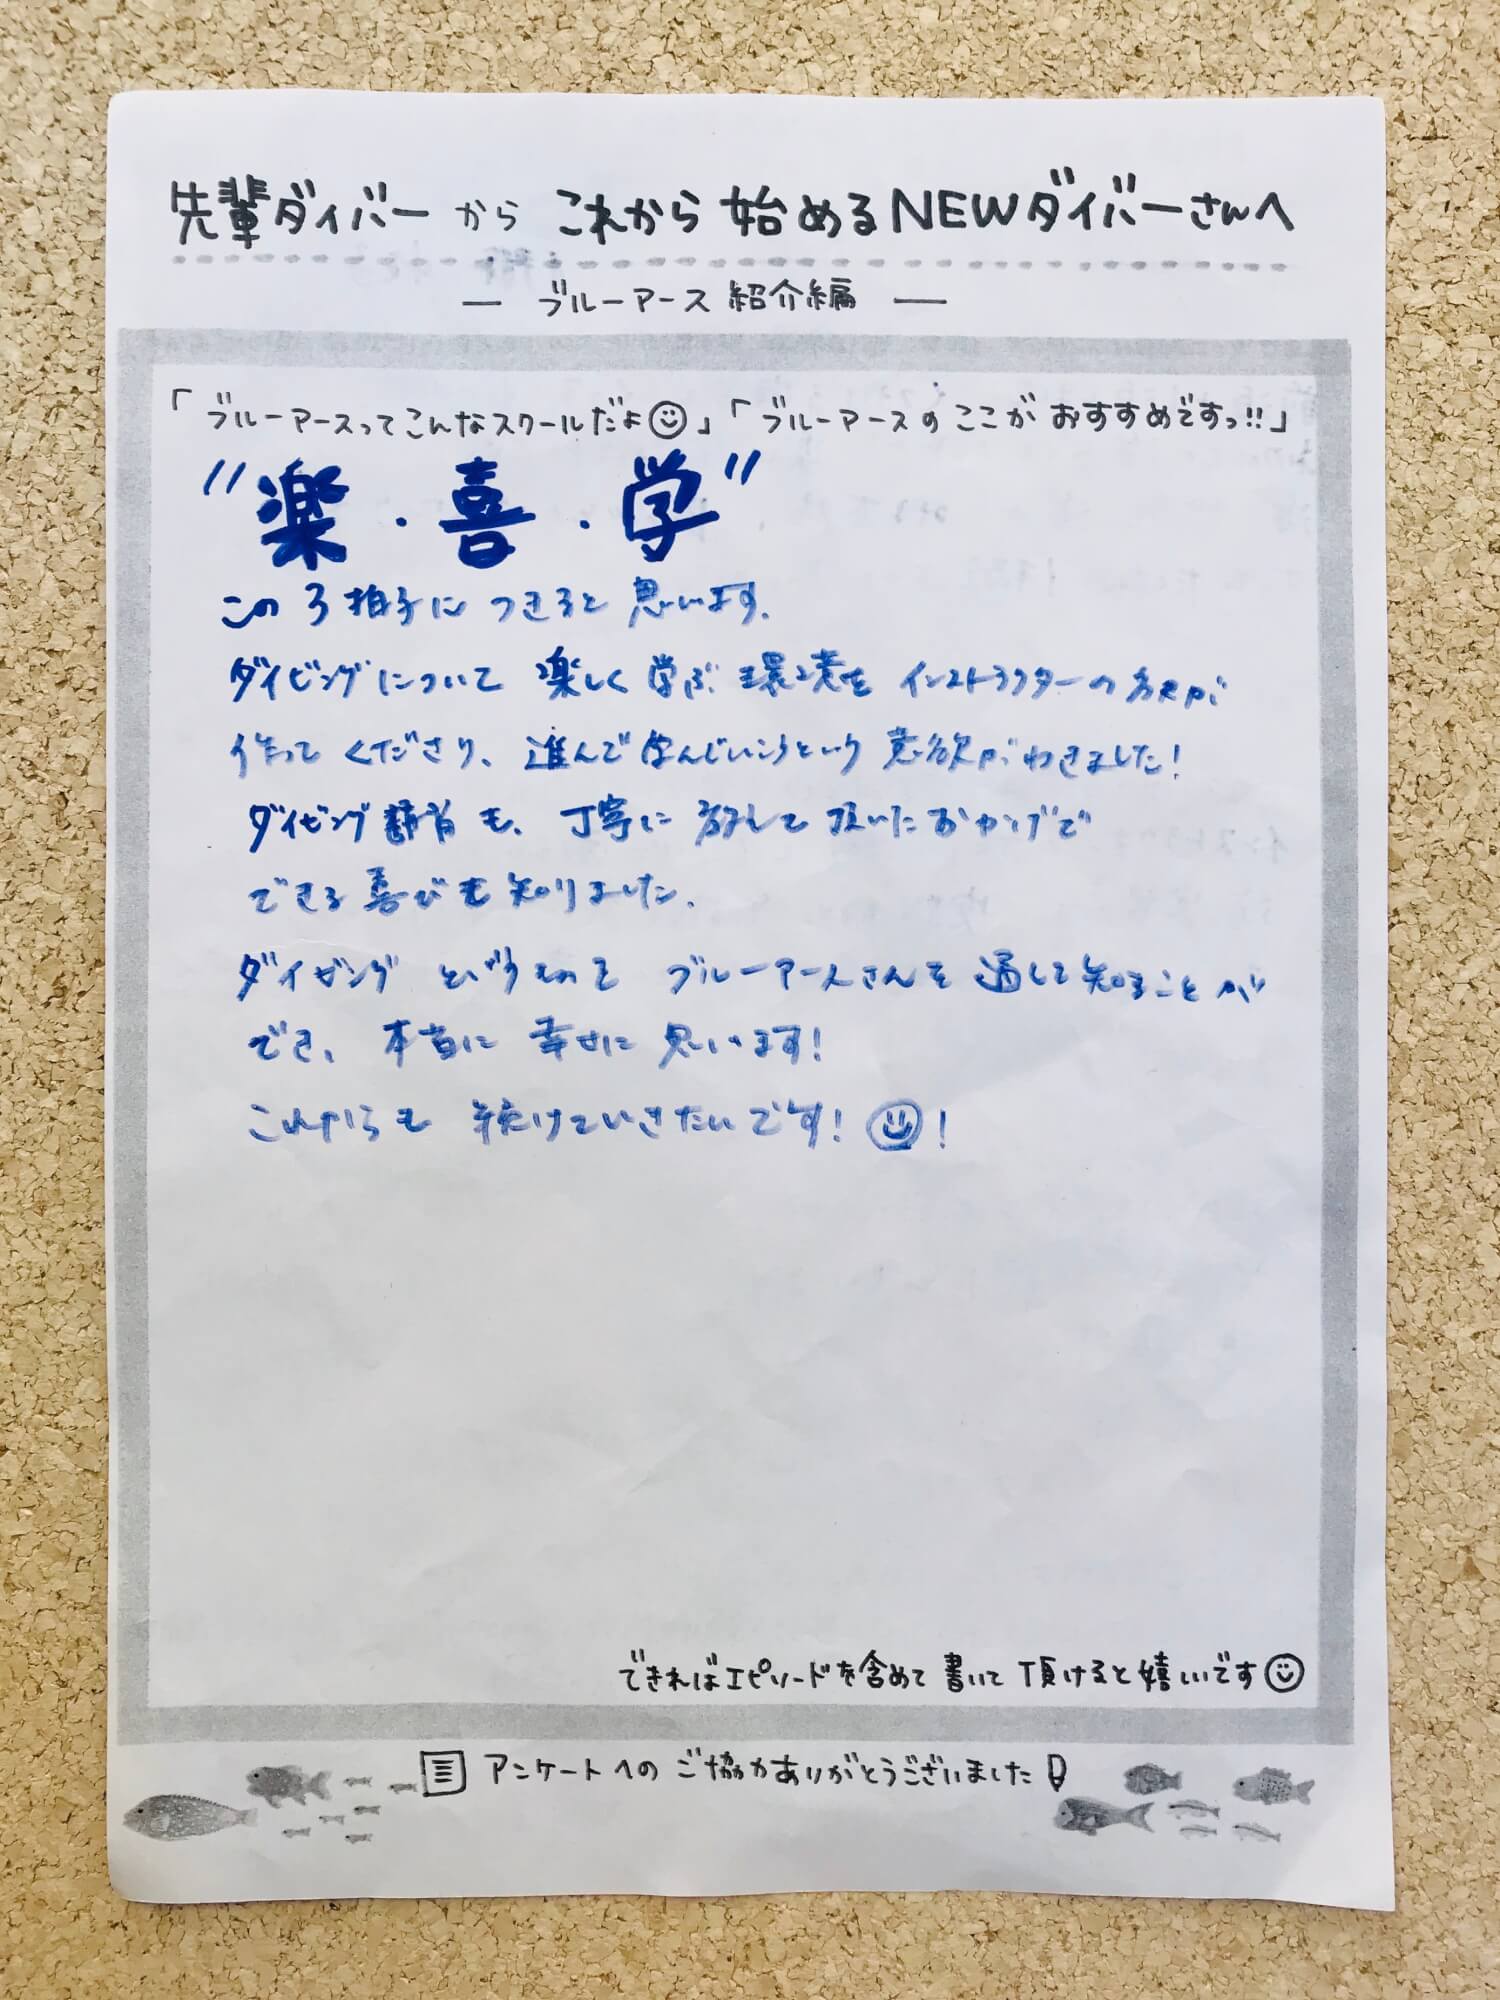 先輩ダイバーから これから始めるNEWダイバーさんへ
― ブルーアース紹介編 ―
「ブルーアースってこんなスクールだよ」「ブルーアースのここがおすすめですっ!!」
"楽・喜・学"
この3拍子につきると思います.
ダイビングについて 楽しく 学ぶ 環境を インストラクターの方々が
作って くださり、進んで学んでいこうという 意欲がわきました!
ダイビング 講習も、丁寧に 教えて 頂いたおかげで
できる 喜びも 知りました.
ダイビング というものを ブルーアースさんを 通して知ることが
でき、本当に 幸せに 思います!
これからも 続けていきたいです! !
できればエピソードを含めて 書いて 頂けると嬉しいです
アンケートへの ご協力ありがとうございました